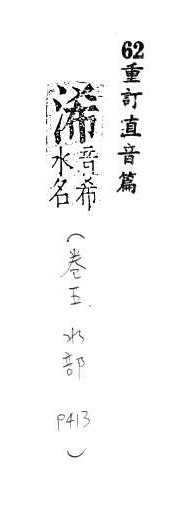 62重訂直音篇
浠音希
水名
（卷五．水部 P413）